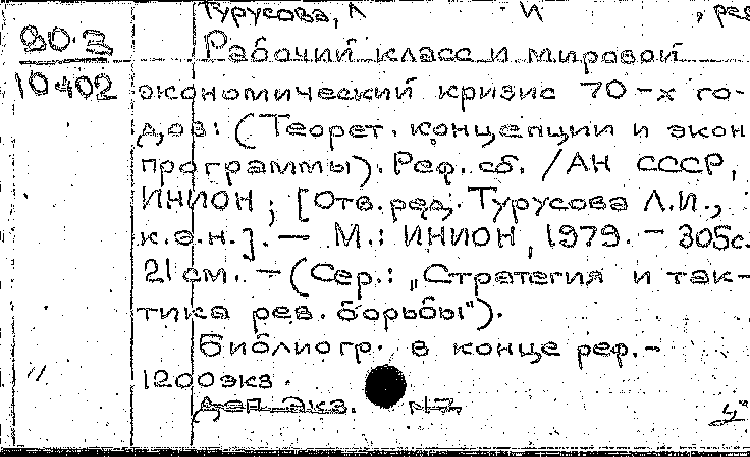 Турусова, Л И , ред
90.3
Рабочий класс и мировой
10402
экономический кризис 70-х го-
дов: (Теорет. концепции и экон
программы). Реф. сб. /АН СССР,
ИНИОН; [Отв. ред. Турусова Л.И.,
к.э.н.]. — М.: ИНИОН, 1979. - 305с.
21 см. - (Сер.: „Стратегия и так-
тика рев. борьбы").
Библиогр. в конце реф. -
1200 экз.
Деп. экз.